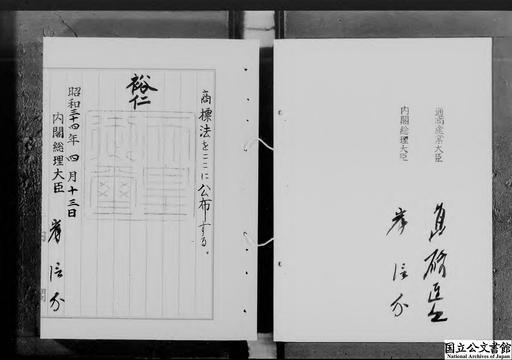 商標法をここに公布する。
裕仁
昭和三十四年四月十三日
内閣総理大臣 岸信介
通商産業大臣
内閣総理大臣 岸信介
国立公文書館
National Archives of Japan